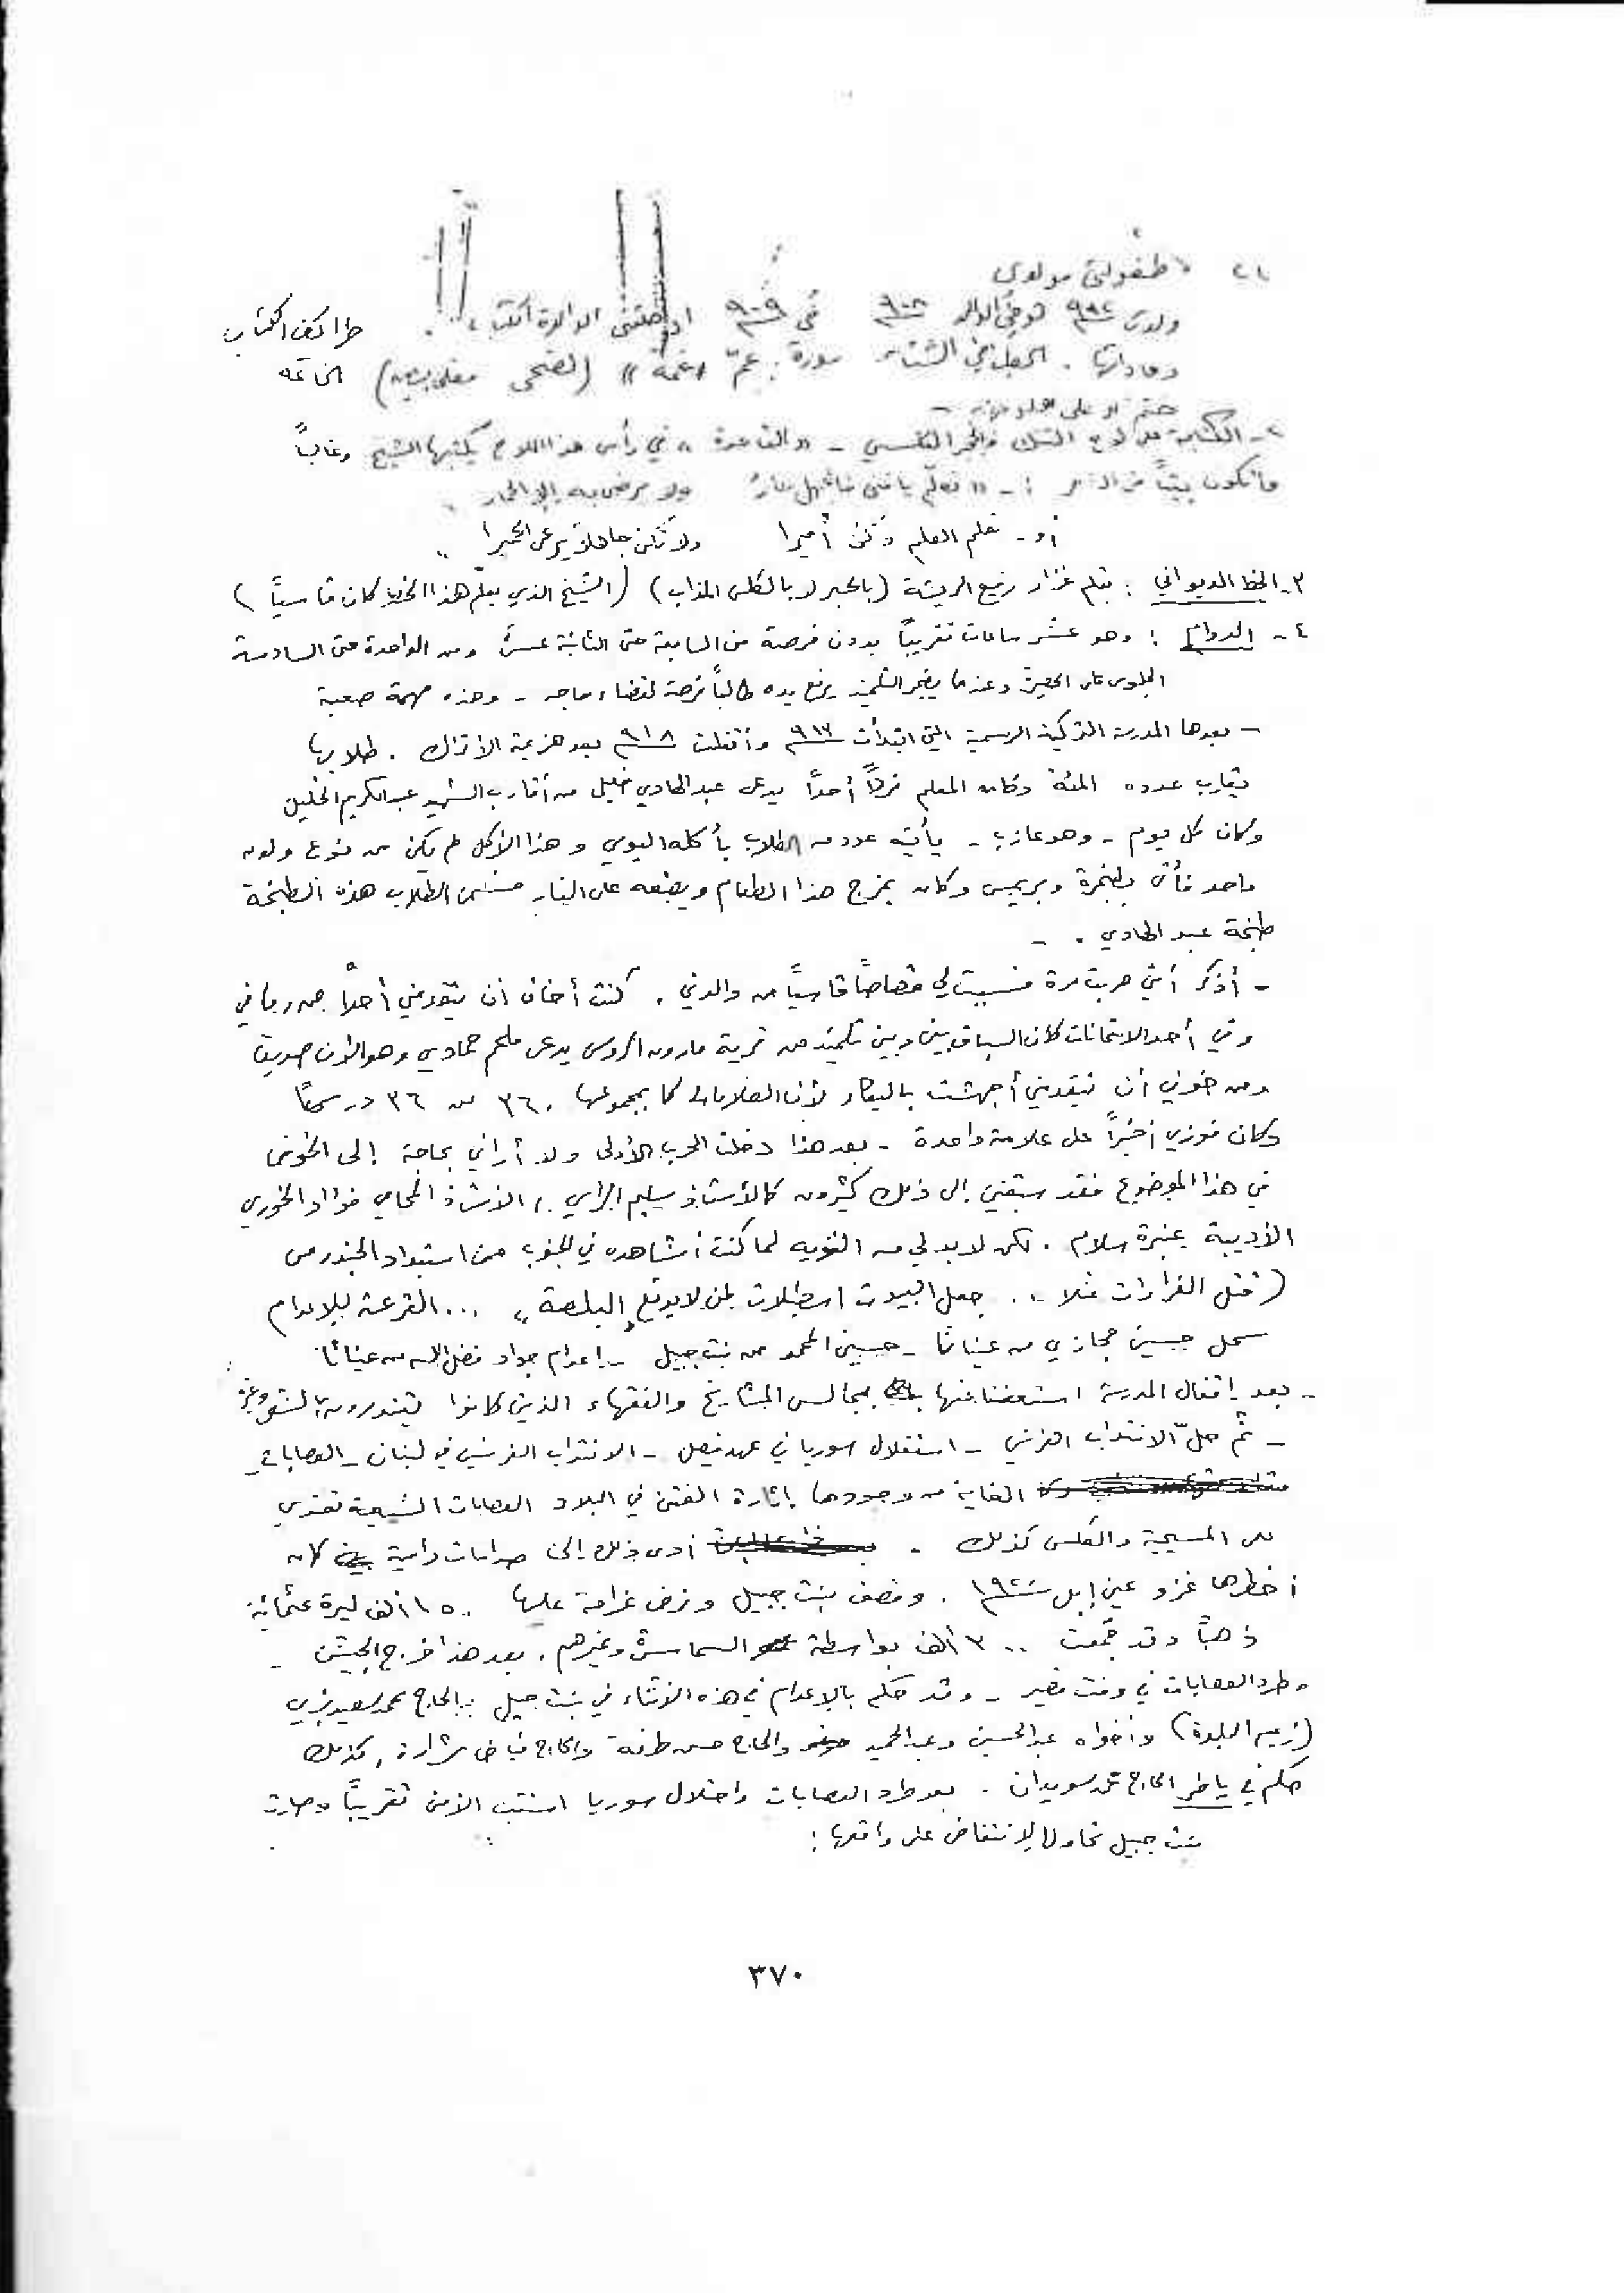 طفولتي مولدي
ولدت توفي الوالد ٩٠٨ في ٩٠٩ ادخلتني الوالدة الكتّاب طرائف الكتاب
وعاداتها . في الشتاء سورة : عمّ «عمّه» (الضحى الخاتمة
٢- الكتابة على لوح التنك والحبر - «القاعدة» في رأس هذا اللوح يكتبها الشيخ وغالباً
ما تكون بيتاً من الشعر : - « تعلّم يا فتى فالجهل عارٌ ولا يرضى به إلا الحمار
أو - تعلم العلم وكن أميرا ولا تكن جاهلاً يرعى الحميرا »
٣- الخط الديواني : بقلم غزّار رفيع الريشة (بالحبر لا بالكلس المذاب) (الشيخ الذي يعلّم هذا الخط كان قاسياً)
٤- الدوام : وهو عشر ساعات تقريباً بدون فرصة من السابعة حتى الثانية عشرة ومن الواحدة حتى السادسة
الجلوس على الحصيرة وعندما يضجر التلميذ يرفع يده طالباً فرصة لقضاء حاجه - وهذه مهمة صعبة
- بعدها المدرسة التركية الرسمية التي ابتدأت ٩١٣ وأقفلت ٩١٨ بعد هزيمة الأتراك . طلابها
يقارب عدده المئة وكان المعلم فرداً أحداً يدعى عبد الهادي خليل من أقارب الشهيد عبد الكريم الخليل
وكان كل يوم - وهو عازب - يأتيه عدد من الطلاب بأكله اليومي وهذا الأكل لم يكن من نوع ولون
واحد فأتى بطنجرة وبريمس وكان يمزج هذا الطعام ويضعه على النار فسمى الطلاب هذه الطبخة
طبخة عبد الهادي . -
- أذكر أني هربت مرة فسببت لي قصاصاً قاسياً من والدتي . كنت أخاف أن يتقدمني أحداً من رفاقي
وفي أحد الامتحانات كان السباق بيني وبين تلميذ من قرية مارون الراس يدعى ملحم حمادي وهو الآن صديق
ومن خوفي أن يتقدمني أجهشت بالبكاء لأن العلامات كما بمجموعها ٣٦٠ من ٣٦ درساً
وكان فوزي أخيراً على علامة واحدة - بعد هذا دخلت الحرب الأولى ولا أراني بحاجة إلى الخوض
في هذا الموضوع فقد سبقني إلى ذلك كثيرون كالأستاذ سليم الأستاذ المحامي فؤاد الخوري
الأديبة عنبرة سلام . لكن لا بد لي من التنويه لما كنت أشاهده في الجنوب من استبداد الجندرمس
(قتل الفرارات مثلا .. جعل البيوت اسطبلات لمن لا يدفع البلصة» ... القرعة للاعدام
حسين حجازي من عيناتا - حسين المحمد من بنت جبيل - إعدام جواد فضل الله من عيناتا
- بعد إقفال المدرسة استعضنا عنها بمجالس المشايخ والفقهاء الذين كانوا يتندرون بالشعر وغيره
- ثم حلّ الانتداب الفرنسي - استقلال سوريا في عهد فيصل - الانتداب الفرنسي في لبنان - العصابات
الغاية من وجودها إثارة الفتن في البلاد العصابات الشيعية تعتدي
على المسيحية والعكس كذلك . أدى ذلك إلى صدامات دامية كان
أخطرها غزو عين إبل . وقصف بنت جبيل وفرض غرامة عليها ١٥٠ ألف ليرة عثمانية
ذهباً وقد جُمعت ٣٠٠ ألف بواسطة السماسرة وغيرهم . بعد هذا خرج الجيش -
وطرد العصابات في وقت قصير - وقد حكم بالإعدام في هذه الأثناء في بنت جبيل : الحاج محمد سعيد بزي
(زعيم البلدة) وأخواه عبد الحسين وعبد الحميد والحاج حسن طرفة والحاج فياض شرارة . كذلك
حكم في ياطر الحاج محمد سويدان . بعد طرد العصابات واحتلال سوريا استتب الأمن تقريباً وصارت
بنت جبيل تحاول الانتفاض على واقعها :
٣٧٠